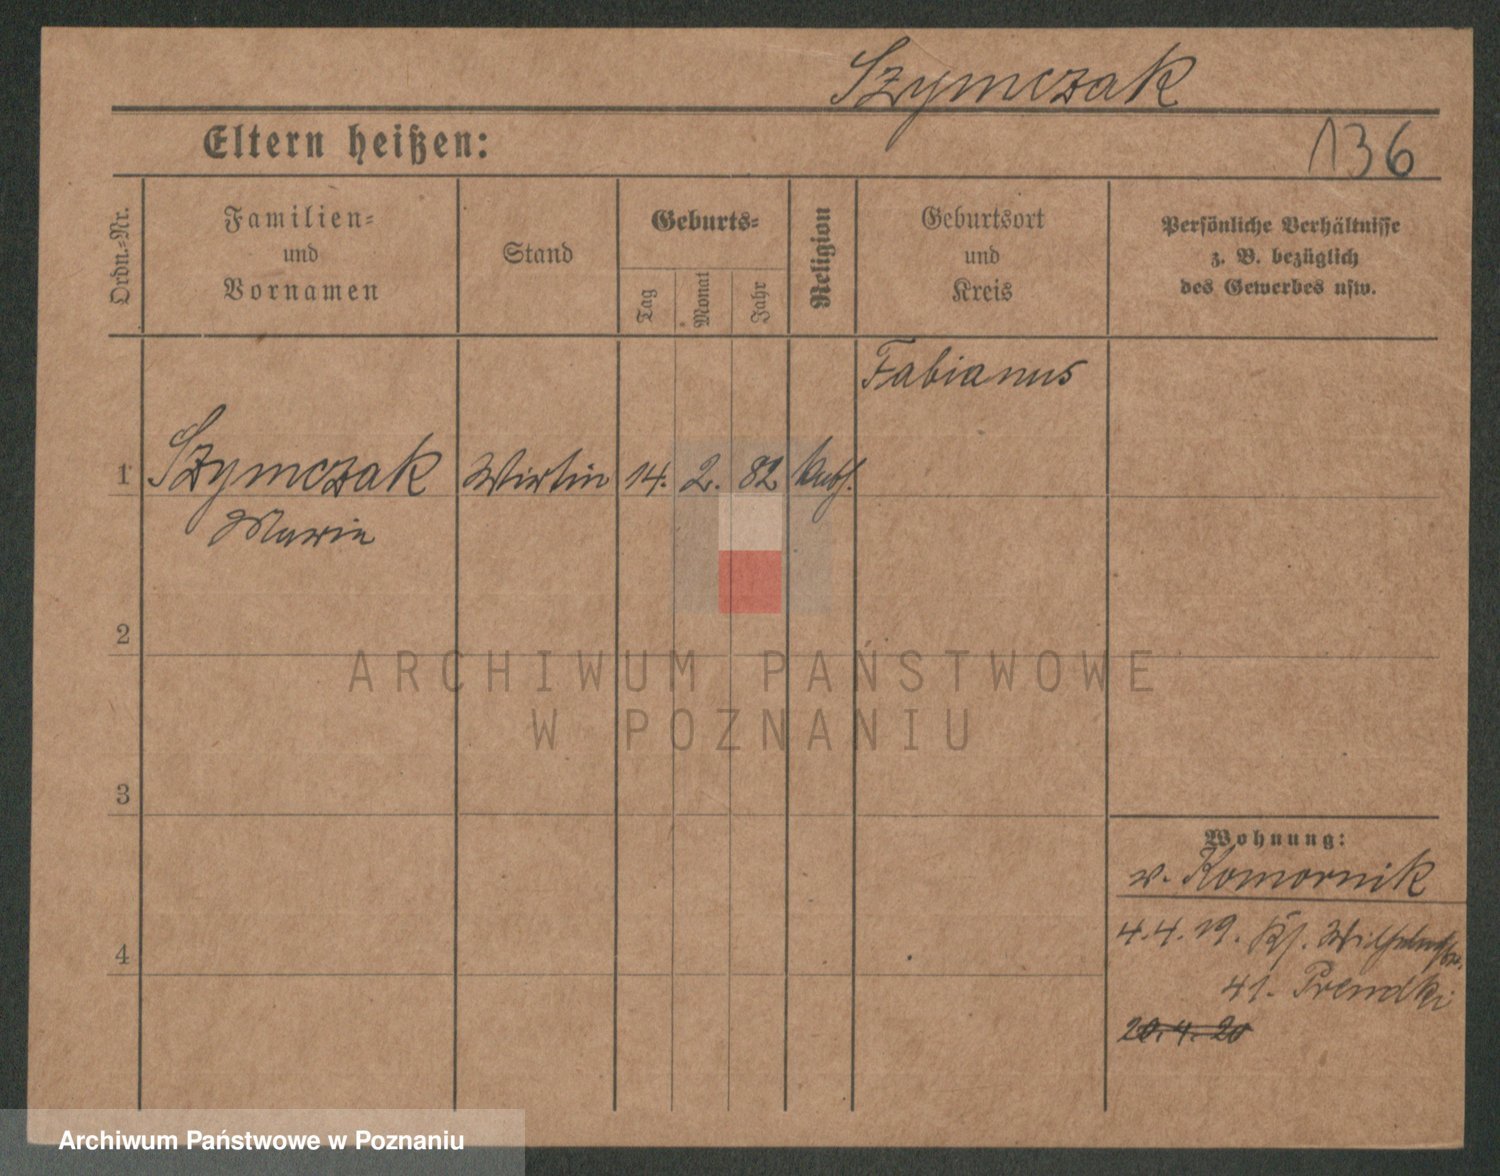 Szymczak
Eltern heißen:
136
Ordn.=Nr.
Familien=
und
Vornamen
Stand
Geburts=
Tag
Monat
Jahr
Religion
Geburtsort
und
Kreis
Persönliche Verhältnisse
z. B. bezüglich
des Gewerbes usw.
Fabianus
1 Szymczak Wirtin 14. 2. 82 kath.
Marie
2
3
4
Wohnung:
v. Komornik
4. 4. 19. Ks. Wilhelmstr.
41.
20. 4. 20
ARCHIWUM PAŃSTWOWE
W POZNANIU
Archiwum Państwowe w Poznaniu